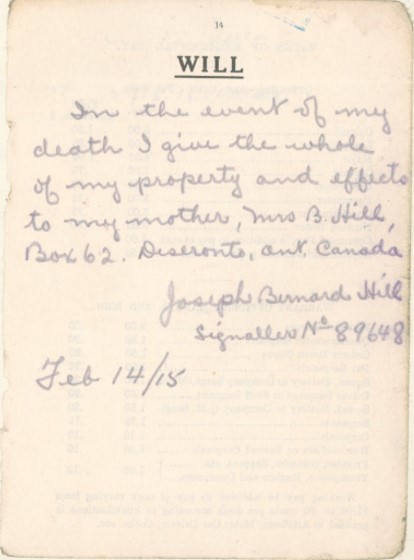 14
WILL
In the event of my
death I give the whole
of my property and effects
to my mother, Mrs B. Hill,
Box 62. Deseronto, ont. Canada
Joseph Bernard Hill
Signaller No 89648
Feb 14/15